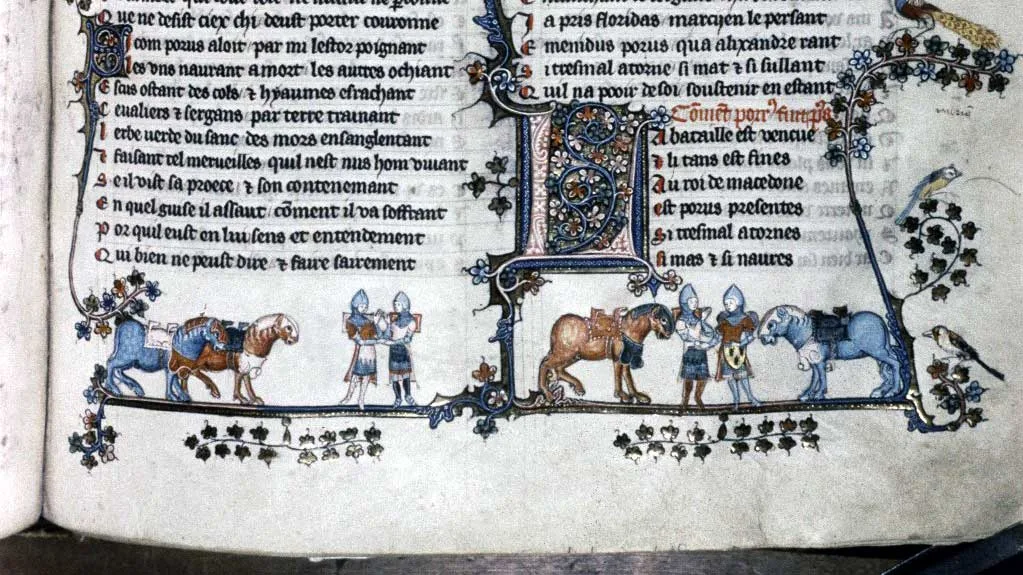 Q ue ne desist ciex chi deust porter couronne
S i com porus aloit par mi lestor poignant
L es vns naurant a mort les autres ochiant
E scus ostant des cols & hyaumes esrachant
C eualiers & sergans par terre trainant
L erbe verde du sanc des mors ensanglentant
& faisant tel merueilles quil nest nus hom viuant
S e il vist sa proece & son contenemant
E n quel guise il assaut cōment il va soffrant
P or quil eust en lui sens et entendement
Q ui bien ne peust dire & faire sairement
a pris floridas marcijen le persant
E menidus porus qua alixandre rant
S i tresmal atorne si mat & si sullant
Q uil na pooir de soi soustenir en estant
Cōmēt porꝰ
L a bataille est vencue
& li tans est fines
A u roi de macedone
est porus presentes
Si tresmal atornes
si mas & si naures